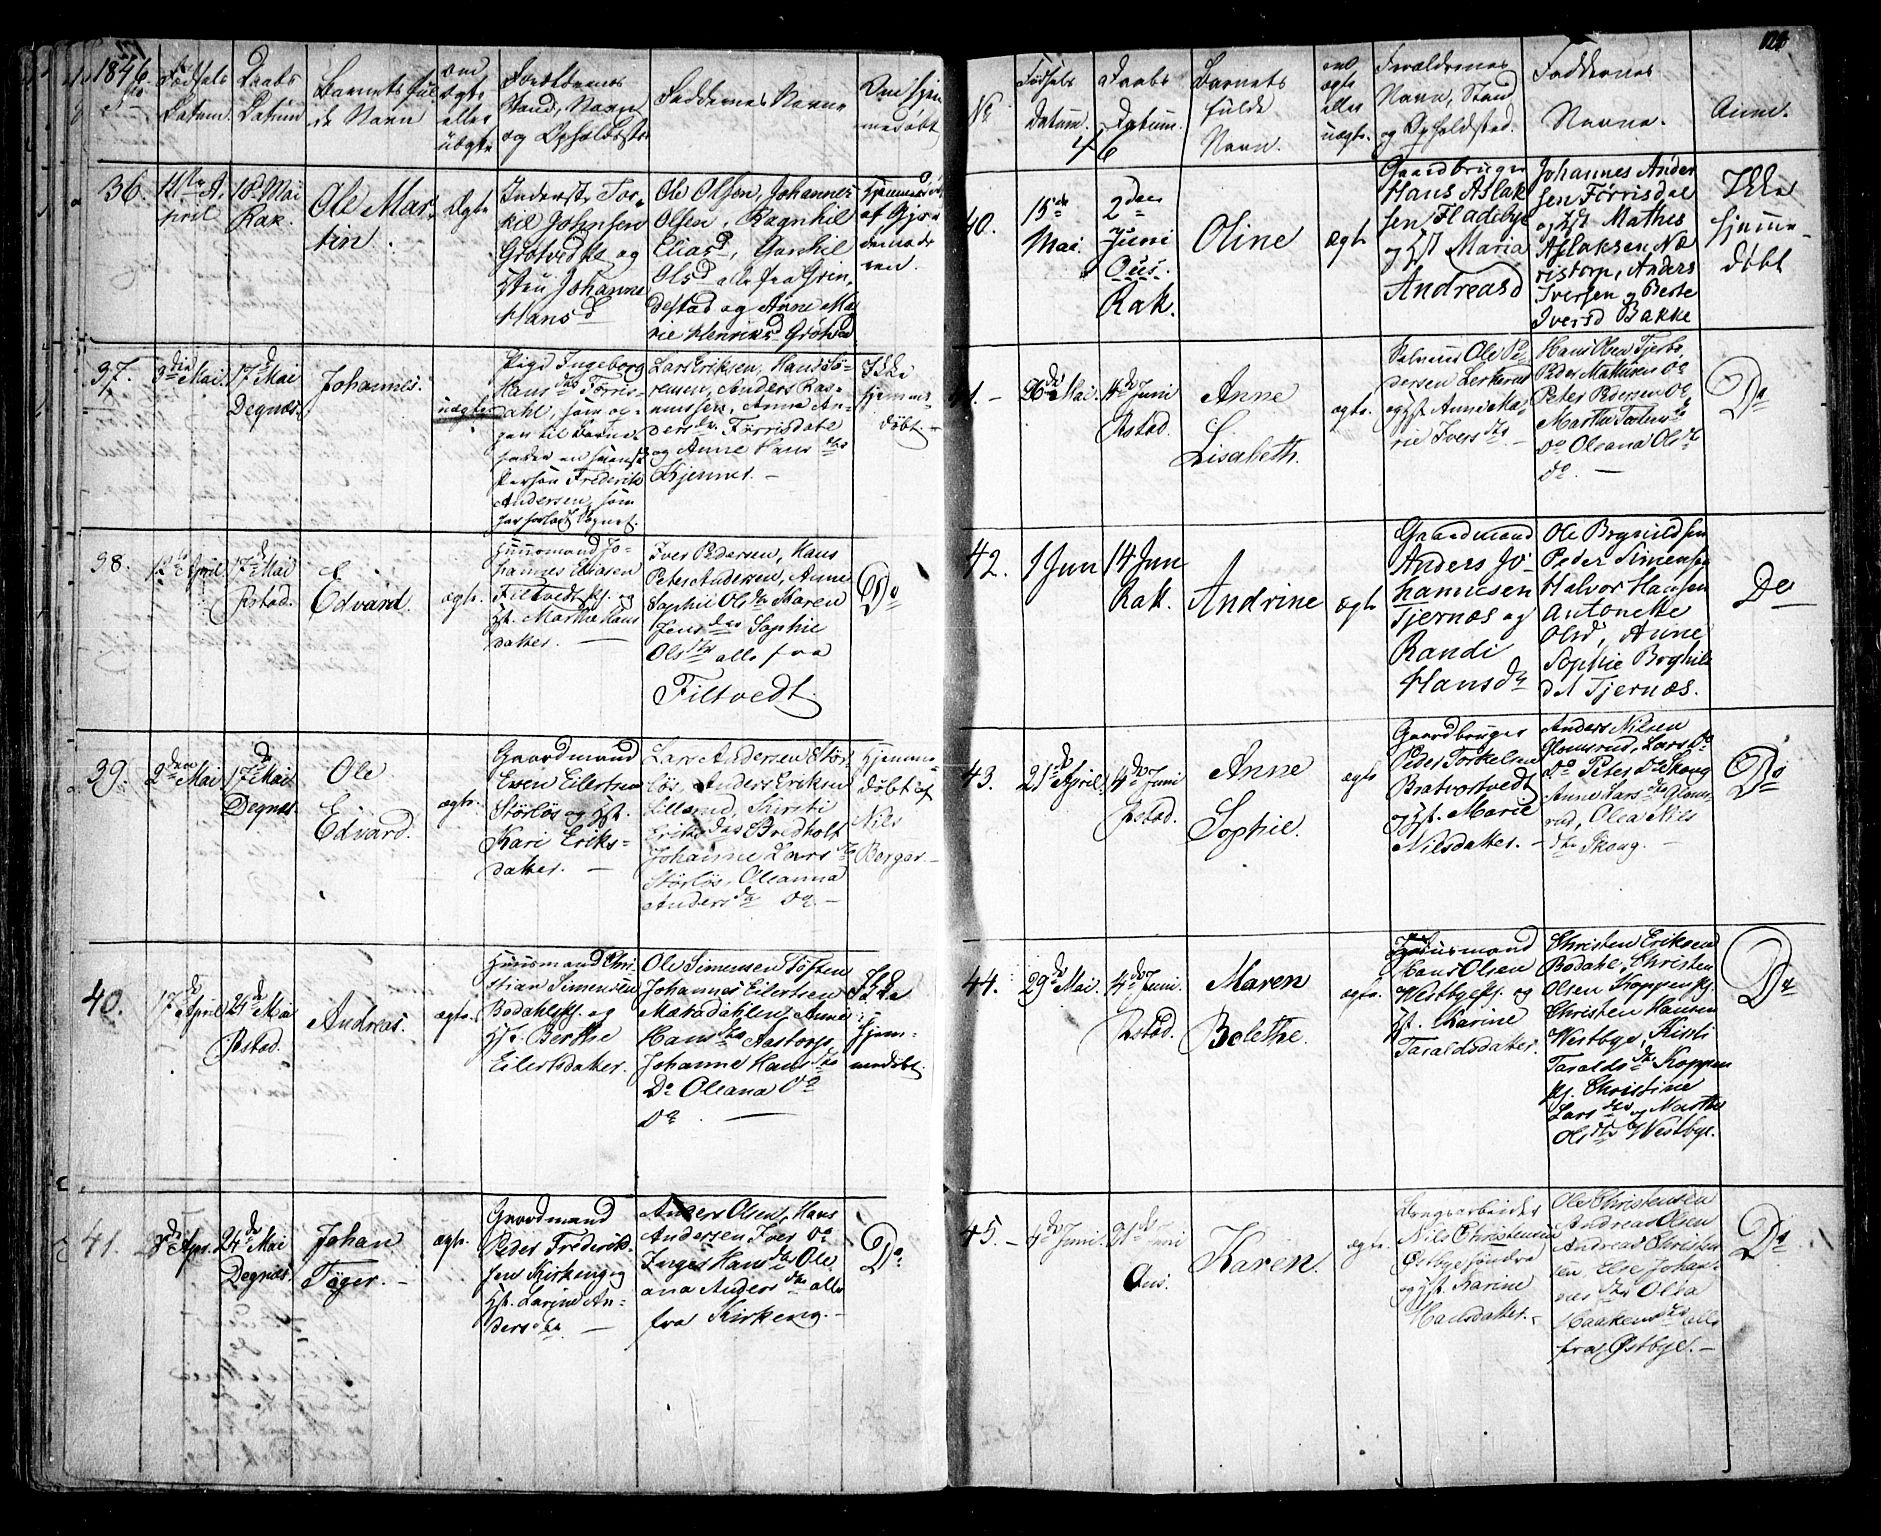 1846.
Fødsels
Datum.
Daabs
Datum
Barnets ful
de Navn
om
ægte
eller
uægte
Forældrenes
Stand, Navn
og Opholdsst.
Faddernes Navne
Om hjem
medøbt
36.
April
10 Mai
Rak.
Ole Mar
tin.
Ægte
Inderst Tor
kil Johnsen
Grøtvedt og
Hustru Johanne
Hansd
Ole Olsen, Johannes
Olsen, Ragnhil
Eliasd, Gunhil
Olsd alle fra Grin
destad og Anne Ma
rie Henriksd Grøtvedt
Hjemmedøbt
af Gjor
demode
ren.
37.
9de Mai.
17de Mai
Degnæs
Johannes.
uægte
Pige Ingeborg
Hansdtr Torris
dahl, som op
gav til Barne
fader en svensk
Person Frederik
Andersen, som
har forladt Sognet.
Lars Eriksen, Hans Sø
rensen, Anders Ras
mussen, Anna An
dersdtr. Torrisdahl
og Anne Hansdtr
Kjernes. —
Ikke
hjemme
døbt —
38.
12te April
17de Mai
Røstad.
Edvard.
ægte.
Huusmand Jo
hannes Eliasen
Filtvedt ej. og
Hst. Marthe Hans
datter. —
Iver Pedersen, Hans
Peter Andersen, Anne
Sophie Olsdtr Karen
Jensdtr Sophie
Olsdtr alle fra
Filtvedt.
Do
39.
2den Mai
17de Mai
Degnæs.
Ole
Edvard.
ægte.
Gaardmand
Even Eilertsen
Størløs og Hst.
Kari Eriks-
datter. —
Lars Andersen Stør
løs, Anders Eriksen
Lillerud, Kirsti
Eriksdtr Bredholt
Johanne Larsdtr
Størløs, Oleanna
Andersdtr Do. —
Hjemme
døbt af
Nils
Borger —
40.
17de April
24de Mai
Røstad.
Andreas.
ægte.
Huusmand Chri
stian Simensen
Bødahl ej. og
Hst. Berthe
Eilertsdatter.
Ole Simensen Toften
Johannes Eilertsen
Hansdtr Aastorp,
Johanne Hansdtr
Do Oleana Do
Do. —
Ikke
hjem-
medøbt.
41.
24de Mai
Degnæs.
Johan
Tøger. —
ægte.
Gaardmand
Peder Frederik
sen Kirkeng og
Hst. Larine An-
dersdtr —
Anders Olsen, Hans
Andersen Iver Do
Inger Hansdtr Ole
ana Andersdtr alle
fra Kirkeng. —
Do
124
No
Fødsels
Datum.
Daabs
Datum.
4/6
Barnets
fulde
Navn.
om
ægte
eller
uægte.
Forældrenes
Navn, Stand
og Opholdssted.
Faddernes
Navne.
Anm.
40.
15de
Mai
2den
Juni
Ous.
Rak.
Oline
Ægte
Gaardbruger
Hans Aslak
sen Fladebye
og Hst Maria
Andreasd
Johannes Ander
sen Torrisdal
og Hst. Mathis
Aslaksen Næ
ristorp, Anders
Iversen og Berte
Iversd Bakke
Ikke
hjemme-
døbt
41. —
26de Mai.
4de Juni
Røstad.
Anne
Lisabeth.
ægte.
Selveier Ole Pe
dersen Lerkerud
og Hst. Anne Ma
rie Iversdtr —
Hans Olsen
Peder Mathisen Do
Peter Pedersen Do
Marthe
Do Oleana Olsdtr
Do. —
Do
42.
1 Jun
14 Jun
Rak.
Andrine
Ægte
Gaardmand
Anders Jo
hannesen
Tjernæs og
Randi
Hansdtr
Ole Brynildsen
Peder Simensen
Halvor Hansen
Antonette
Olsd, Anne
Sophie Brynils
dtr Tjernæs.
Do
43.
21de April
4de Juni
Røstad.
Anne
Sophie.
ægte
Gaardbruger
Peder Torkelsen
Bratvortvedt
og Hst. Marie
Nilsdatter. —
Anders Nilsen
Glomsrud, Lars Do
Do Peter Do Skoug
Anne Larsdtr Gloms
rud, Olea Nils
dtr Skoug. —
Do
44.
29de Mai.
4de Juni.
Røstad.
Maren
Bolethe.
ægte.
Huusmand
Hans Olsen
Westbye ej. og
Hst. Karine
Taraldsdatter.
Christen Eriksen
Bødahl, Christen
Olsen Koppen ej.
Christen Hansen
Westbye, Kirsti
Taraldsdtr Koppen
ej. Christine
Larsdtr og Marthe
Olsdtr Westbye.
Do
45. —
4de Juni.
21de Juni
Ous.
Karen.
ægte.
Brugsarbeider
Nils Christensen
Østbye søndre
og Hst. Karine
Hansdatter. —
Ole Christensen
Andreas Olsen
Andreas Christen
sen, Else Johan-
nesdtr Olea
Haakensdtr alle
fra Østbye. —
Do